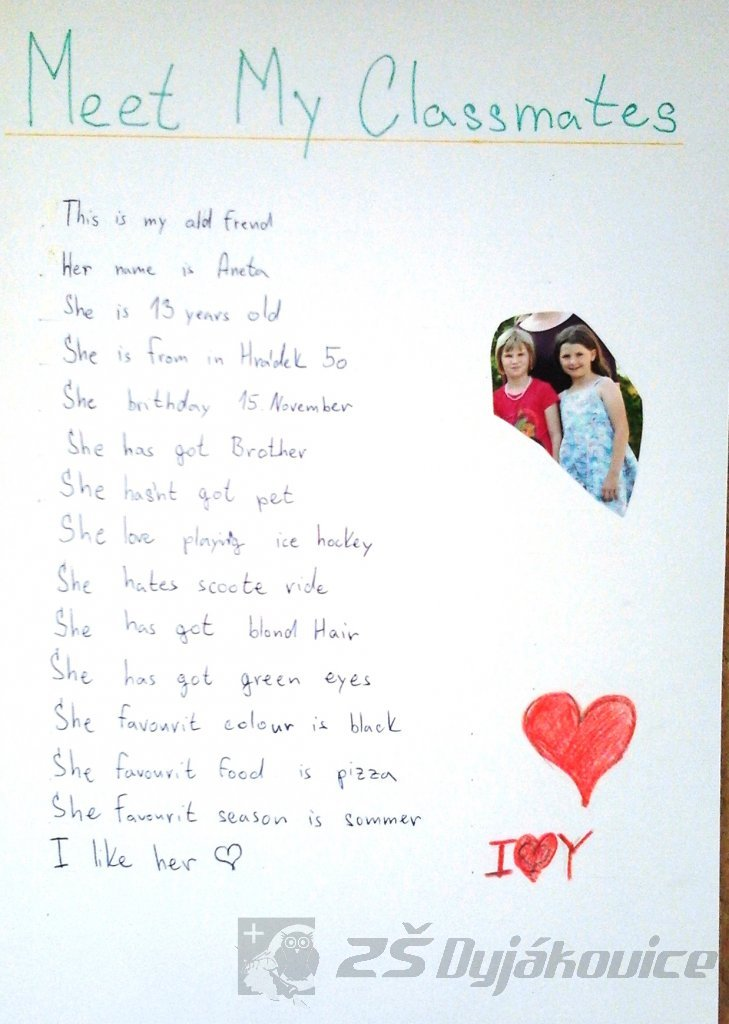 Meet My Classmates
This is my old frend
Her name is Aneta
She is 13 years old
She is from in Hrádek 50
She brithday 15. November
She has got Brother
She hasn't got pet
She love playing ice hockey
She hates scoote ride
She has got blond Hair
She has got green eyes
She favouvit colour is black
She favourit food is pizza
She favourit season is sommer
I like her ♡
I ♥ Y
ZŠ Dyjákovice